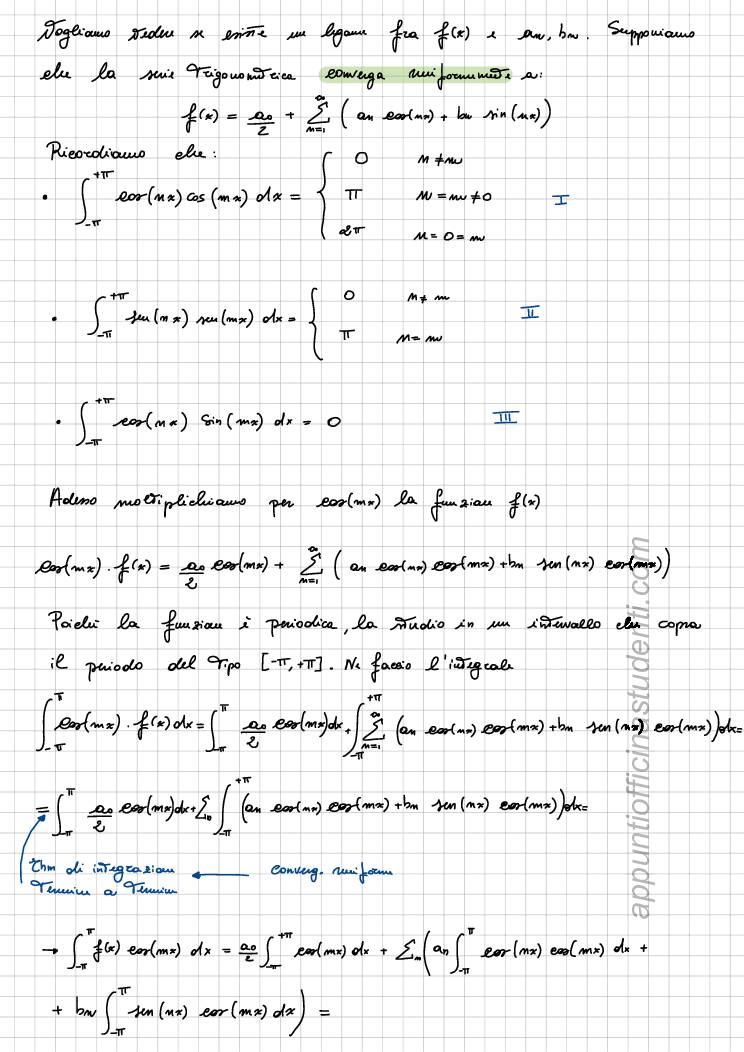 Vogliamo vedere se esiste un legame fra f(x) e an, bn. Supponiamo
che la serie trigonometrica converga uniformemente a:
f(x) = a0/2 + ∑_{n=1}^{∞} ( an cos(nx) + bn sin(nx) )
Ricordiamo che:
• ∫_{-π}^{+π} cos(nx) cos(mx) dx = { 0 n ≠ m
π n = m ≠ 0 I
2π n = 0 = m
• ∫_{-π}^{+π} sen(nx) sen(mx) dx = { 0 n ≠ m II
π n = m
• ∫_{-π}^{+π} cos(nx) sin(mx) dx = 0 III
Adesso moltiplichiamo per cos(mx) la funzione f(x)
cos(mx) · f(x) = a0/2 cos(mx) + ∑_{n=1}^{∞} ( an cos(nx) cos(mx) + bn sen(nx) cos(mx) )
Poiché la funzione è periodica, la studio in un intervallo che copra
il periodo del tipo [-π, +π]. Ne faccio l'integrale
∫_{-π}^{π} cos(mx) · f(x) dx = ∫_{-π}^{π} a0/2 cos(mx) dx + ∫_{-π}^{+π} ∑_{n=1}^{∞} (an cos(nx) cos(mx) + bn sen(nx) cos(mx)) dx =
= ∫_{-π}^{π} a0/2 cos(mx) dx + ∑ ∫_{-π}^{+π} (an cos(nx) cos(mx) + bn sen(nx) cos(mx)) dx =
Thm di integrazione ← converg. uniforme
termine a termine
→ ∫_{-π}^{π} f(x) cos(mx) dx = a0/2 ∫_{-π}^{+π} cos(mx) dx + ∑_n ( an ∫_{-π}^{π} cos(nx) cos(mx) dx +
+ bn ∫_{-π}^{π} sen(nx) cos(mx) dx ) =
appuntiofficinastudenti.com